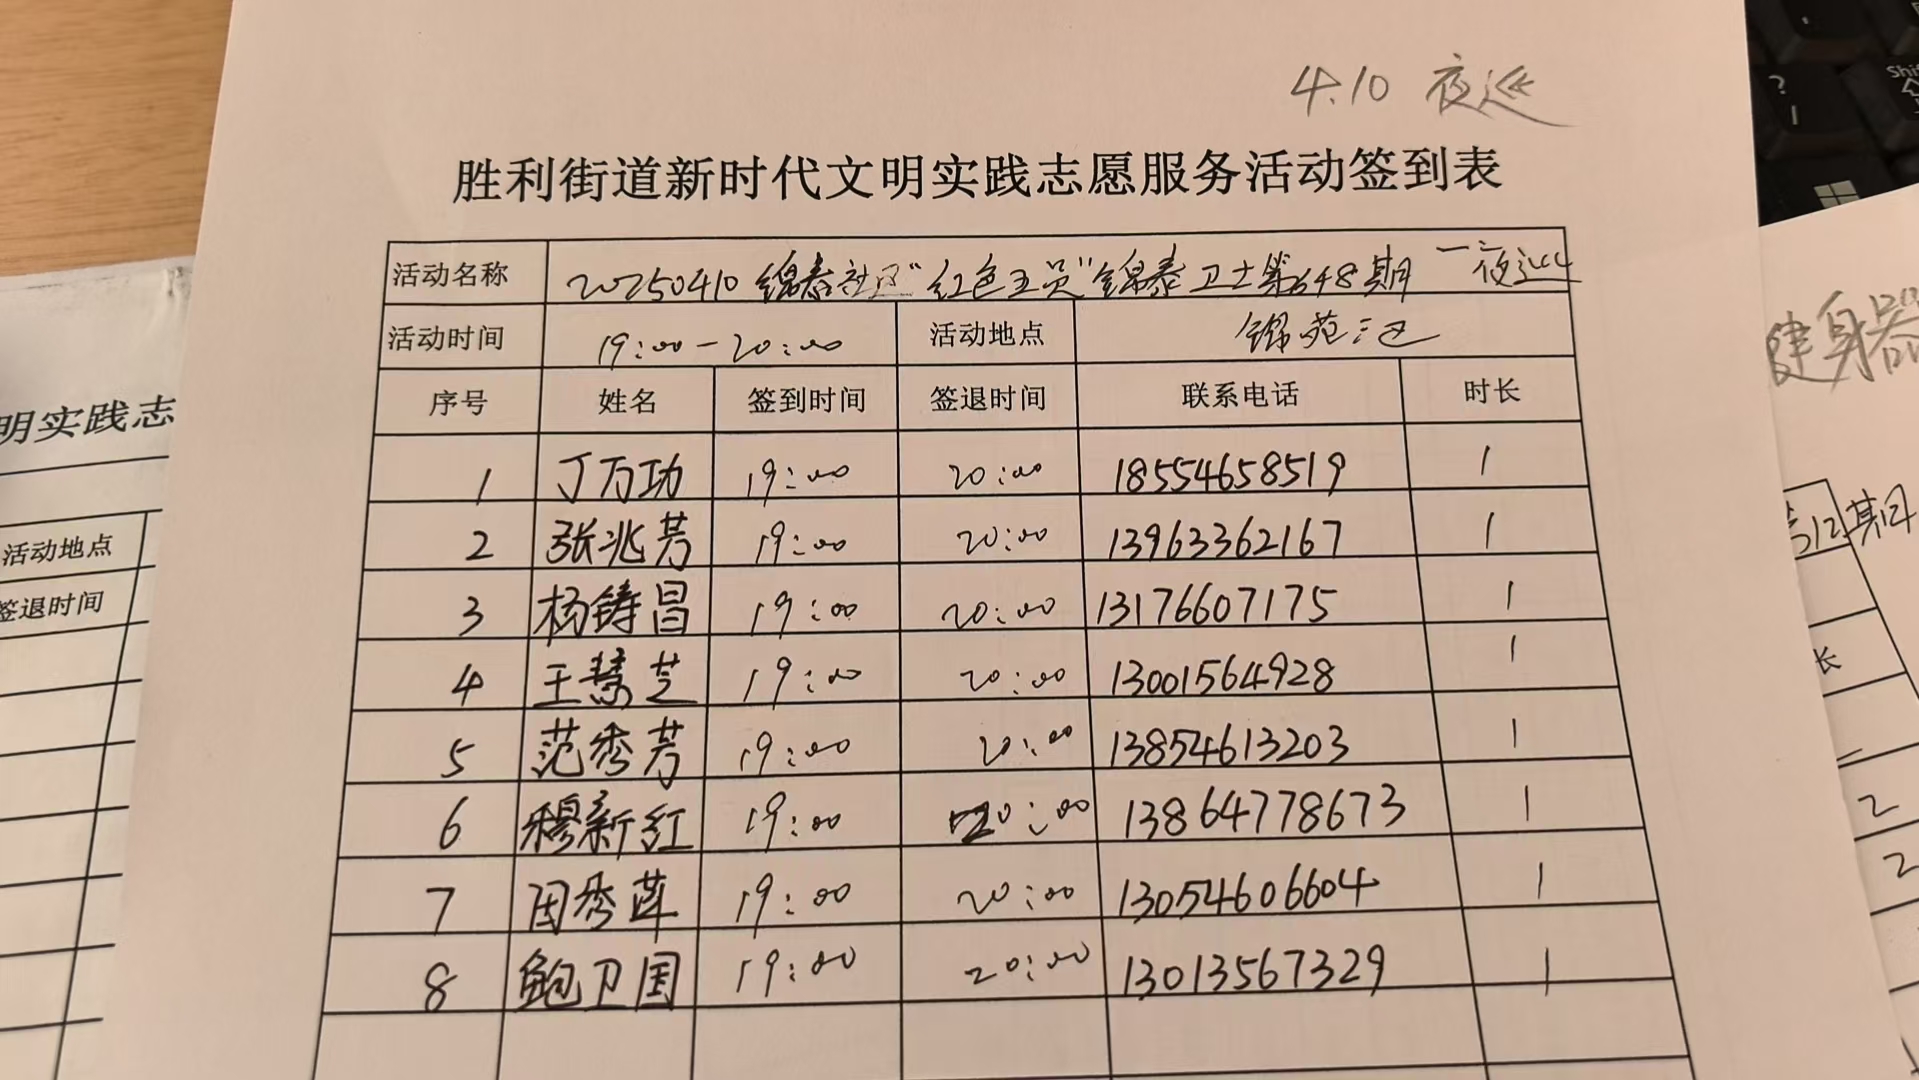 4.10 夜巡
胜利街道新时代文明实践志愿服务活动签到表
活动名称 20250410 锦泰社区"红色五员"锦泰卫士第648期 一夜巡
活动时间 19:00-20:00 活动地点 锦苑三区
序号 姓名 签到时间 签退时间 联系电话 时长
1 丁万功 19:00 20:00 18554658519 1
2 张兆芳 19:00 20:00 13963362167 1
3 杨铸昌 19:00 20:00 13176607175 1
4 王慧芝 19:00 20:00 13001564928 1
5 范秀芳 19:00 20:00 13854613203 1
6 穆新红 19:00 20:00 13864778673 1
7 周秀萍 19:00 20:00 13054606604 1
8 鲍卫国 19:00 20:00 13013567329 1
明实践志
活动地点
签退时间
健身器
12期
长
2
2
Shift
?